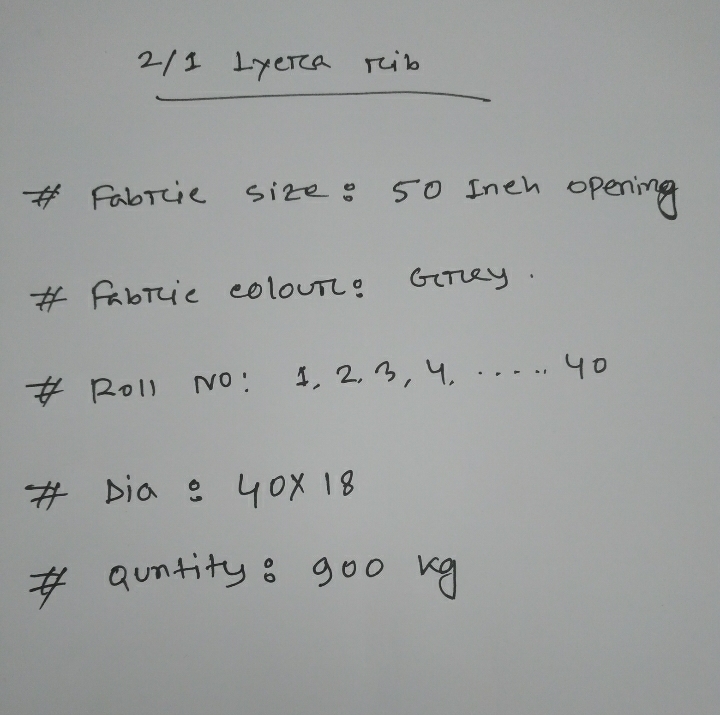 2/1 Lyerca rib
# Fabric size: 50 Inch opening
# Fabric colour: Grey.
# Roll No: 1, 2, 3, 4, ..... 40
# Dia: 40X18
# Quntity: 900 kg